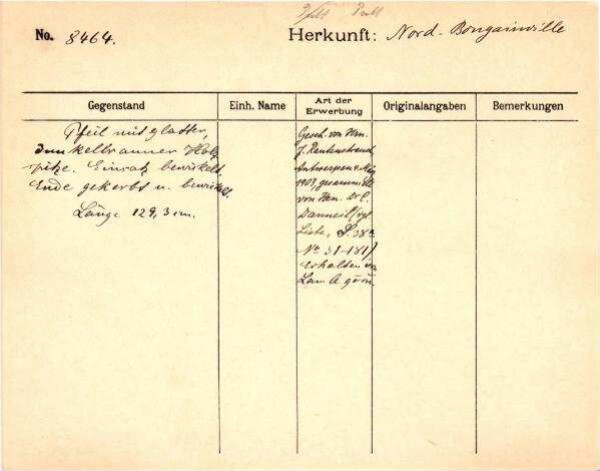 No. 8464.
Herkunft: Nord-Bougainville
Gegenstand
Einh. Name
Art der Erwerbung
Originalangaben
Bemerkungen
Pfeil mit glatter,
dunkelbrauner Holz
spitze. Einsatz bewickelt,
Ende gekerbt u. bewickelt.
Länge 129,3 cm.
Gesch. von Hrn.
J. Rautenstrauch,
Antwerpen
1903, gesammelt
von Hrn. Dr. C.
Danneil
Liste, S.
No 31-181)
erhalten